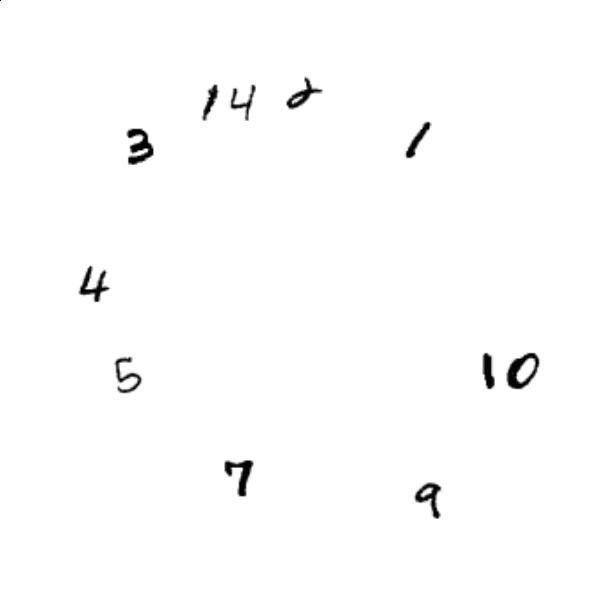 14 2
3 1
4
5 10
7 9